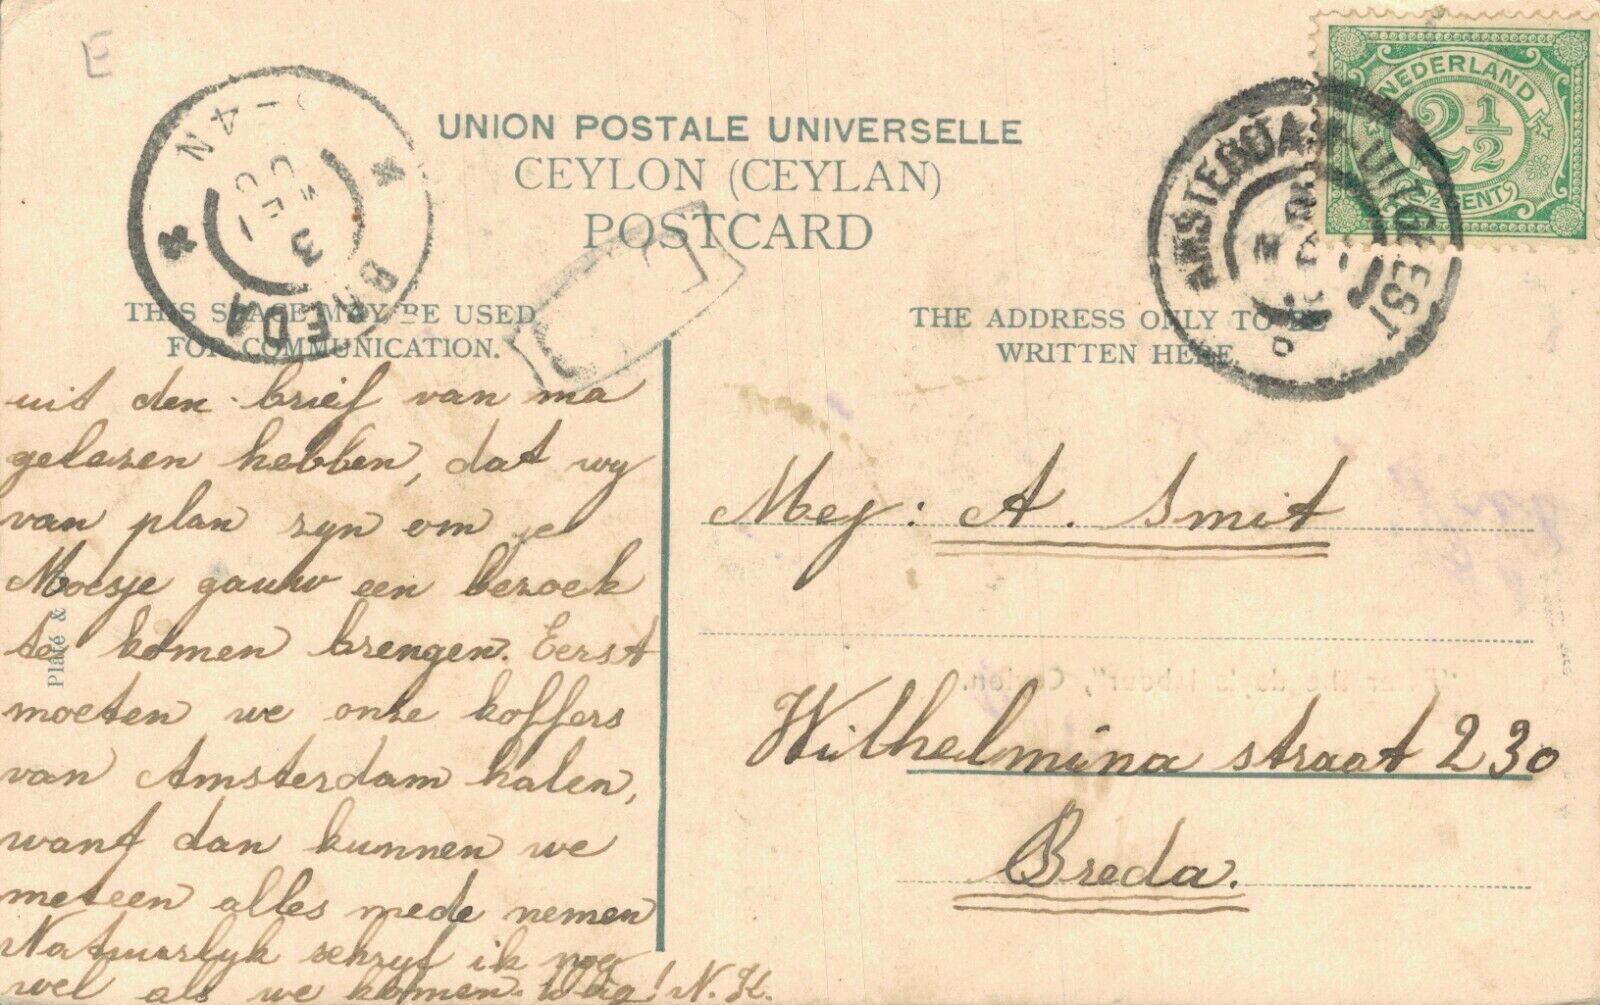 E
UNION POSTALE UNIVERSELLE
CEYLON (CEYLAN)
POSTCARD
NEDERLAND
2½
2½ CENT
AMSTERDAM-UITGEEST
BREDA
4N
3
THIS SPACE MAY BE USED
FOR COMMUNICATION.
THE ADDRESS ONLY TO BE
WRITTEN HERE.
uit den brief van ma
gelezen hebben, dat wy
van plan zyn om je
Moesje gauw een bezoek
te komen brengen. Eerst
moeten we onze koffers
van Amsterdam halen,
want dan kunnen we
meteen alles mede nemen
Natuurlyk schryf ik nog
wel als we komen. Dag! N. H.
Mej: A. Smit
Wilhelmina straat 230
Breda.
Plâté &